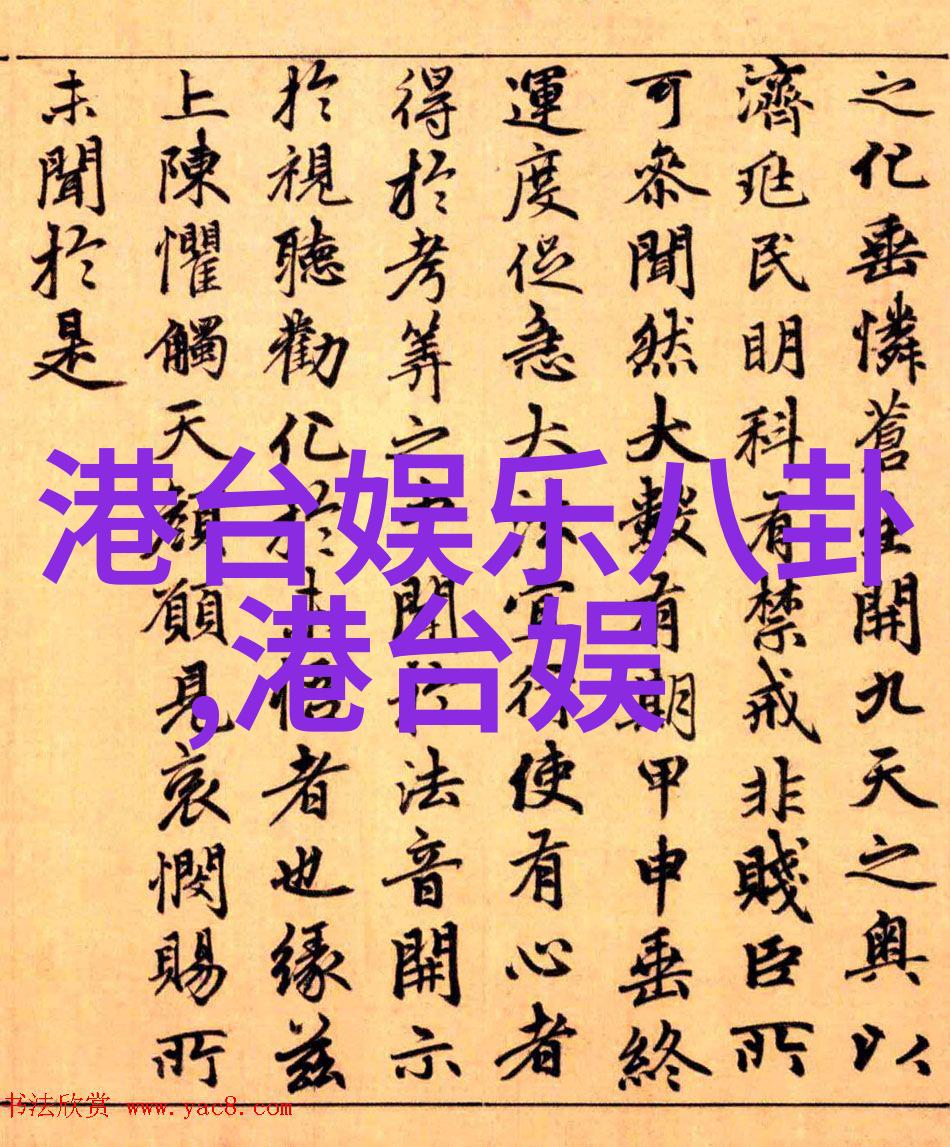 之化垂憐蒼生開九天之奧以
濟兆民明科有禁戒非賤臣所
可参聞然大數有期甲申垂終
運度促急大法宜行使有心者
得於考筭之開於法音開示
於視聽勸化於未悟者也緣茲
上陳懼觸天顏願見哀憫賜所
未聞於是
港台娱乐八卦
,港台娱
书法欣赏 www.yac8.com